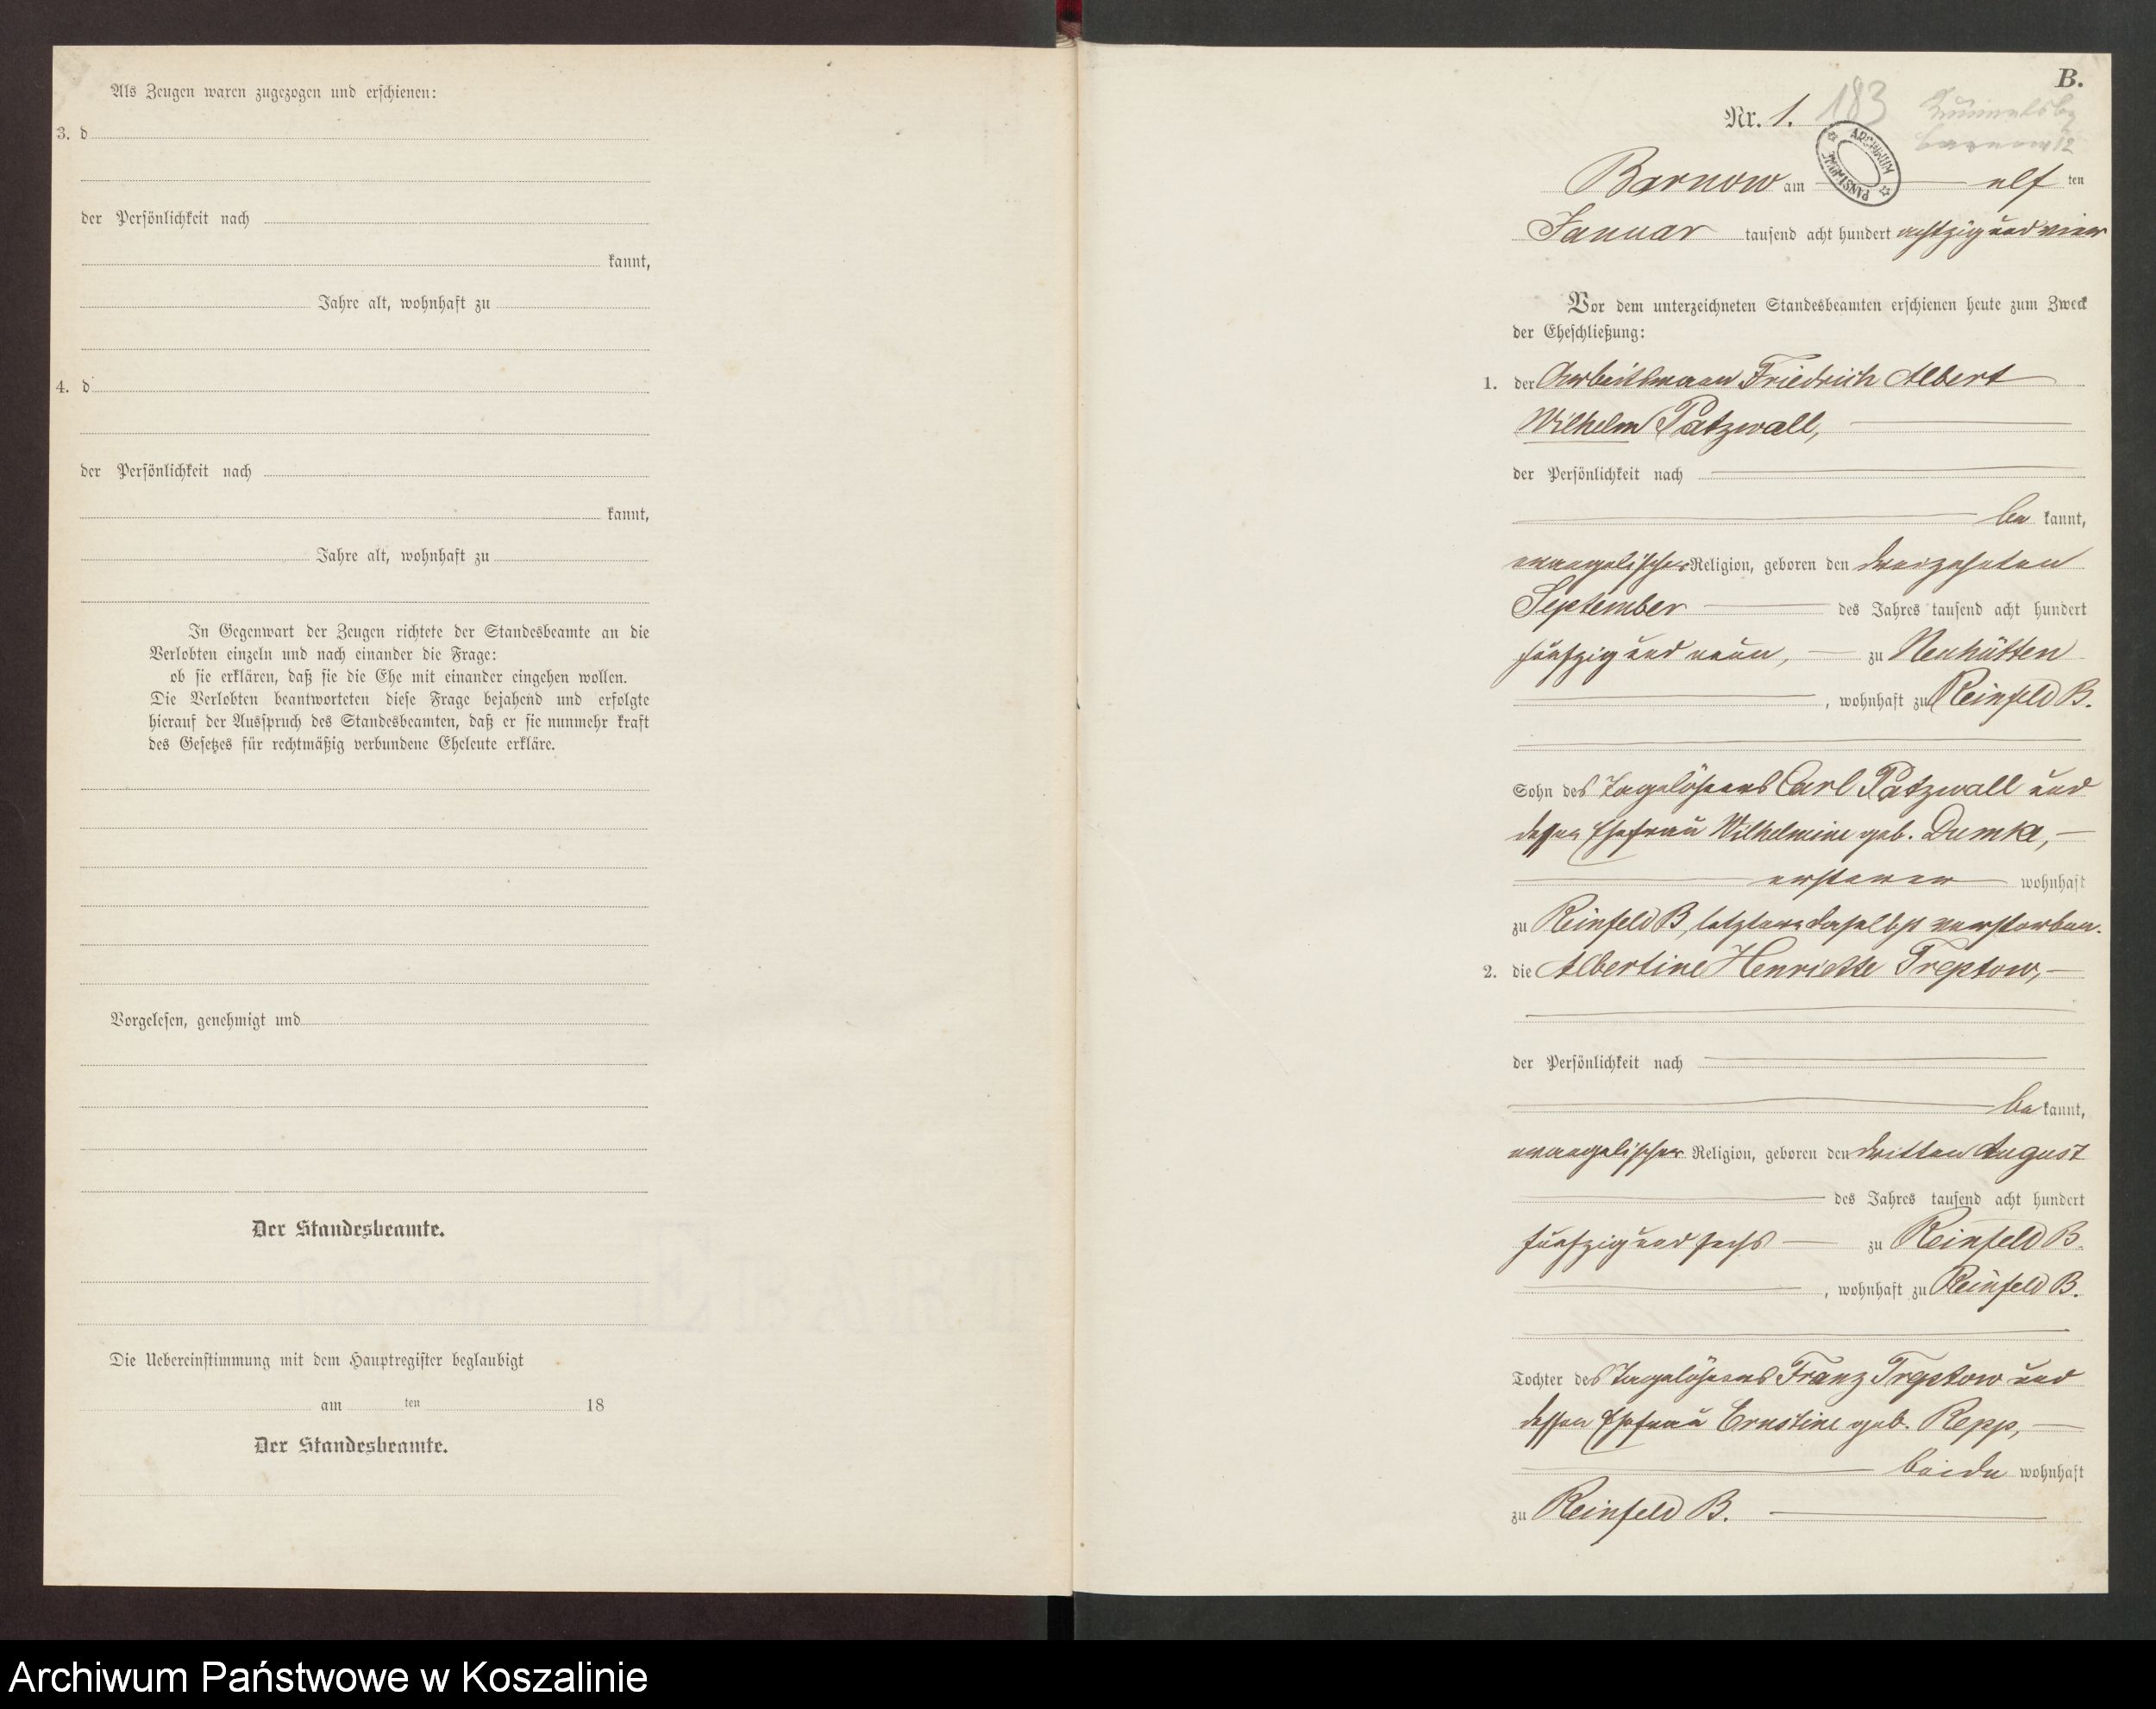 Als Zeugen waren zugezogen und erschienen:
3. d
der Persönlichkeit nach
kannt,
Jahre alt, wohnhaft zu
4. d
der Persönlichkeit nach
kannt,
Jahre alt, wohnhaft zu
In Gegenwart der Zeugen richtete der Standesbeamte an die
Verlobten einzeln und nach einander die Frage:
ob sie erklären, daß sie die Ehe mit einander eingehen wollen.
Die Verlobten beantworteten diese Frage bejahend und erfolgte
hierauf der Ausspruch des Standesbeamten, daß er sie nunmehr kraft
des Gesetzes für rechtmäßig verbundene Eheleute erkläre.
Vorgelesen, genehmigt und
Der Standesbeamte.
Die Uebereinstimmung mit dem Hauptregister beglaubigt
am ten 18
Der Standesbeamte.
B.
Nr. 1. 183
ARCHIWUM PAŃSTWOWE
Barnow am elf ten
Januar tausend acht hundert achtzig und vier
Vor dem unterzeichneten Standesbeamten erschienen heute zum Zweck
der Eheschließung:
1. der Arbeitsmann Friedrich Albert
Wilhelm Patzwall,
der Persönlichkeit nach
be kannt,
evangelischer Religion, geboren den dreizehnten
September des Jahres tausend acht hundert
fünfzig und neun, zu Neuhütten
, wohnhaft zu Reinfeld B.
Sohn des Tagelöhners Carl Patzwall und
dessen Ehefrau Wilhelmine geb. Dumke,
ersterer wohnhaft
zu Reinfeld B, letztere daselbst verstorben.
2. die Albertine Henriette Treptow,
der Persönlichkeit nach
be kannt,
evangelischer Religion, geboren den dritten August
des Jahres tausend acht hundert
fünfzig und sechs zu Reinfeld B.
, wohnhaft zu Reinfeld B.
Tochter des Tagelöhners Franz Treptow und
dessen Ehefrau Ernstine geb. Repp,
beide wohnhaft
zu Reinfeld B.
Archiwum Państwowe w Koszalinie